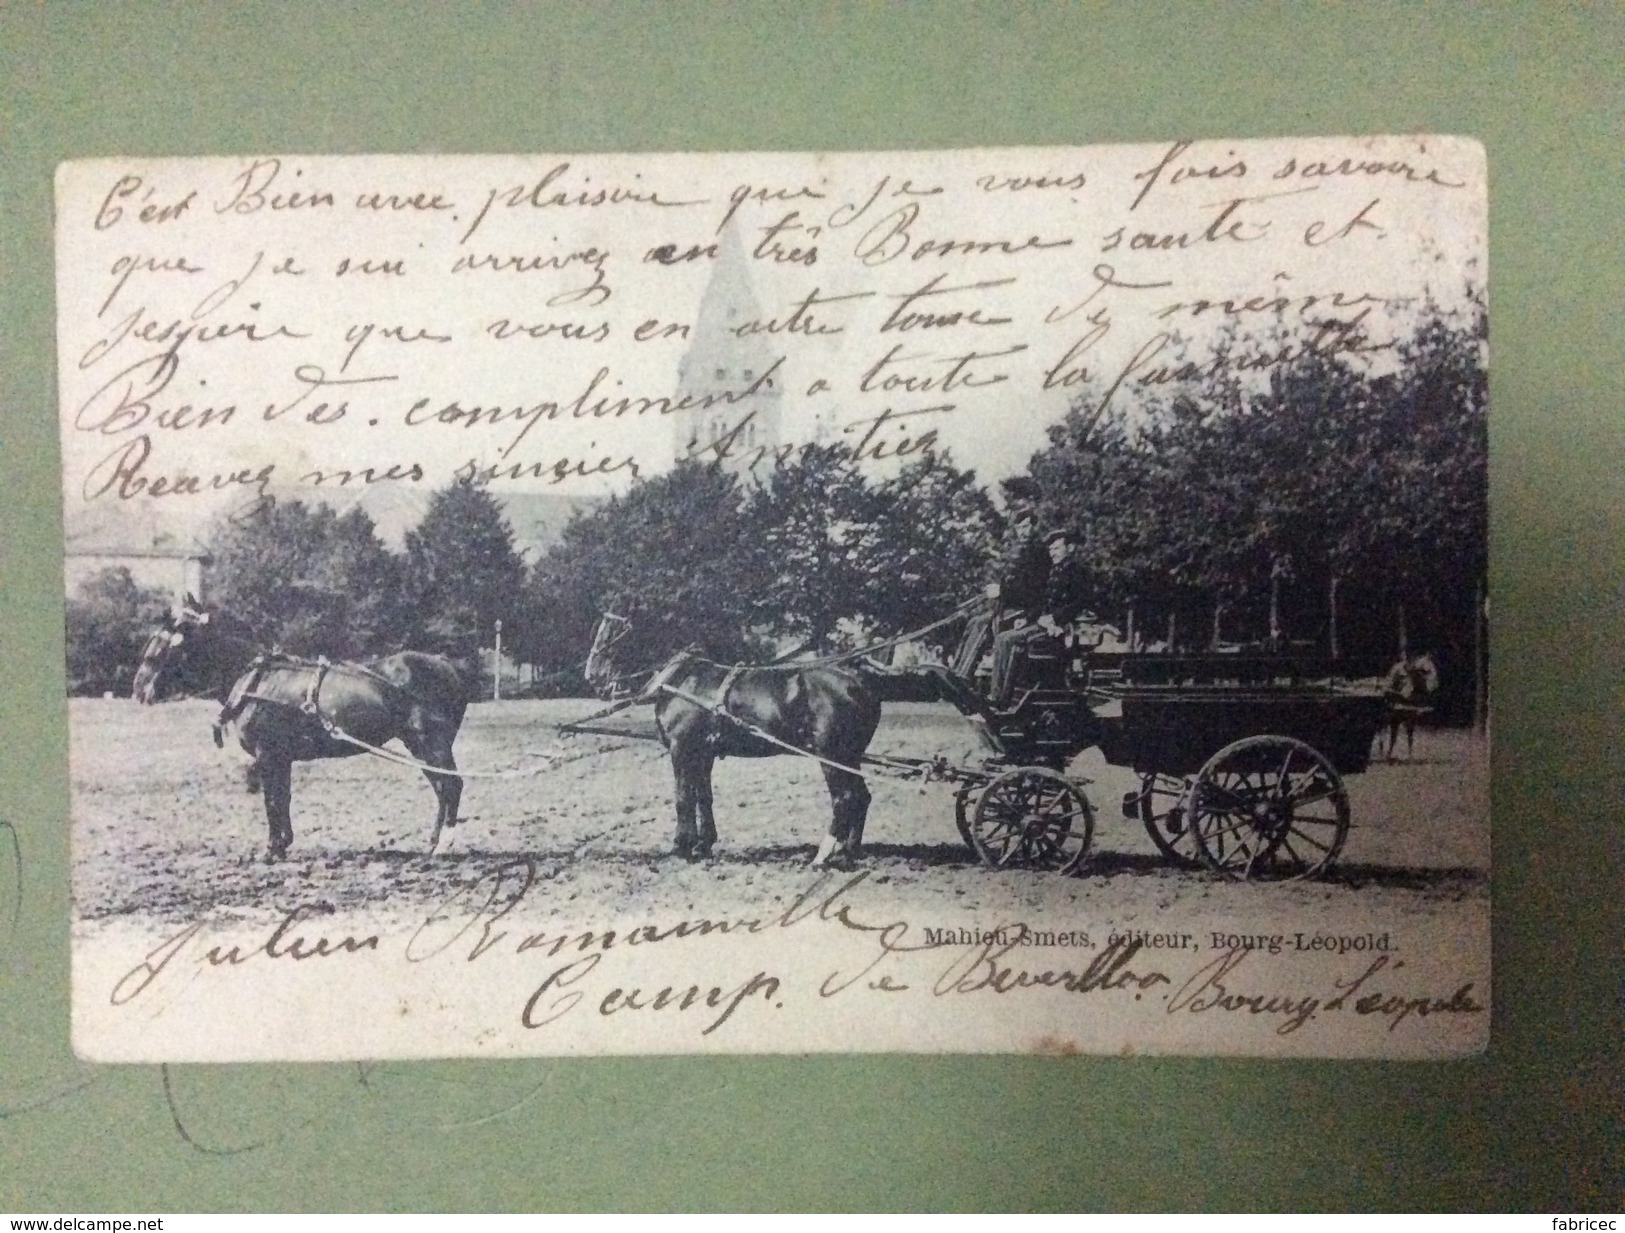 C'est Bien avec plaisire que je vous fois savoire
que je sui arrivez en très Bonne santé et
j'espère que vous en aitre tousse de même
Bien des compliment a toute la famille
Reçavez mes sinsiez Amitiez
Julien Romainville
Mahieu-Smets, éditeur, Bourg-Léopold.
Camp. de Beverloo. Bourg Léopold
www.delcampe.net
fabricec